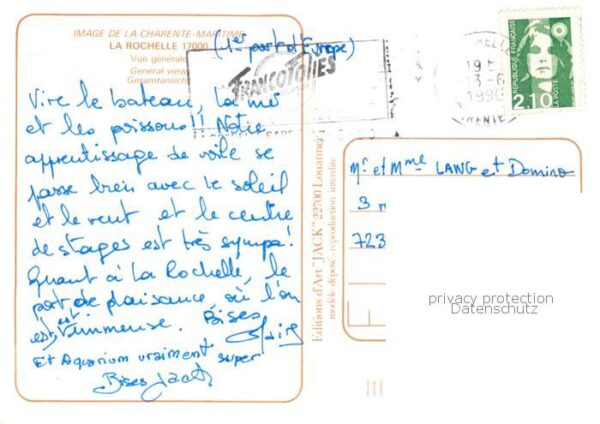 IMAGE DE LA CHARENTE-MARITIME
LA ROCHELLE 17000
(1er port d'Europe)
Vue générale
General view
Gesamtansicht
FRANCOFOLIES
Vive le bateau, la mer
et les poissons!! Notre
apprentissage de voile se
passe bien avec le soleil
et le vent et le centre
de stages est très sympa!
Quant à La Rochelle, le
port de plaisance où l'on
est immense. Bises
Claire
Et Aquarium vraiment super
Bises
Editions d'Art "JACK" 22700 Louannec
modèle déposé - reproduction interdite
1990
REPUBLIQUE FRANÇAISE
2,10
LA POSTE
Mr et Mme LANG et Domino
3 r
723
privacy protection
Datenschutz